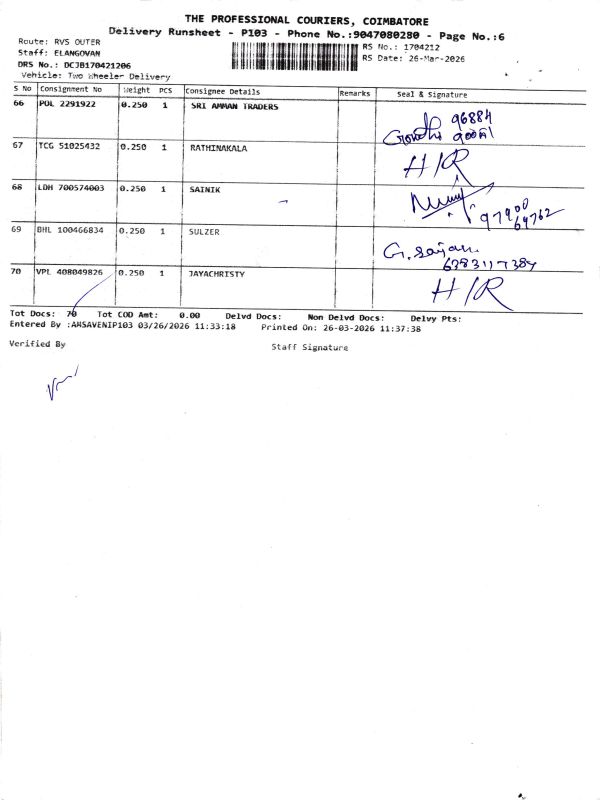 THE PROFESSIONAL COURIERS, COIMBATORE
Delivery Runsheet - P103 - Phone No.:9047080280 - Page No.:6
Route: RVS OUTER
RS No.: 1704212
Staff: ELANGOVAN
RS Date: 26-Mar-2026
DRS No.: DCJB170421206
Vehicle: Two Wheeler Delivery
S No Consignment No Weight PCS Consignee Details Remarks Seal & Signature
66 POL 2291922 0.250 1 SRI AMMAN TRADERS
96884
67 TCG 51025432 0.250 1 RATHINAKALA H/R
68 LDH 700574003 0.250 1 SAINIK
97900
69762
69 BHL 100466834 0.250 1 SULZER G. Sajan
6383117384
70 VPL 408049826 0.250 1 JAYACHRISTY H/R
Tot Docs: 70 Tot COD Amt: 0.00 Delvd Docs: Non Delvd Docs: Delvy Pts:
Entered By :AMSAVENIP103 03/26/2026 11:33:18 Printed On: 26-03-2026 11:37:38
Verified By Staff Signature